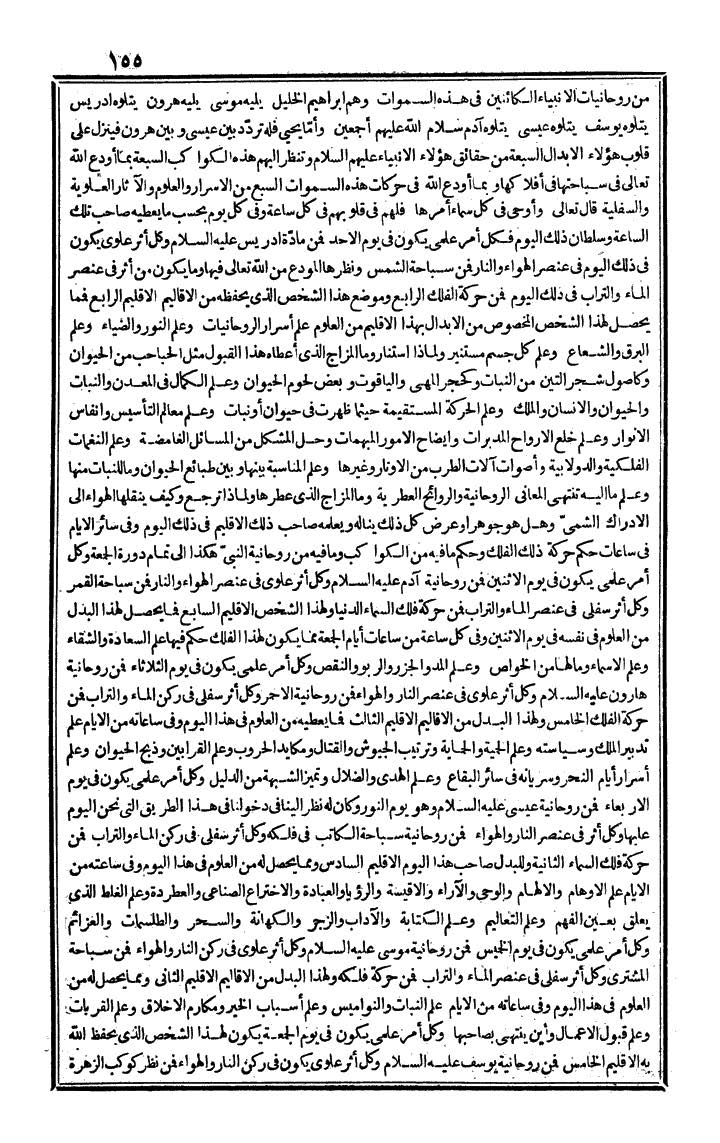 ١٥٥
من روحانيات الانبياء الكائنين فى هذه السموات وهم ابراهيم الخليل يليه موسى يليه هرون يتلوه ادريس
يتلوه يوسف يتلوه عيسى يتلوه آدم سلام الله عليهم أجمعين وأما يحيى فله تردد بين عيسى وبين هرون فينزل على
قلوب هؤلاء الابدال السبعة من حقائق هؤلاء الانبياء عليهم السلام وتنظر اليهم هذه الكواكب السبعة بما أودع الله
تعالى فى سباحتها فى أفلاكها وبما أودع الله فى حركات هذه السموات السبع من الاسرار والعلوم والآثار العلوية
والسفلية قال تعالى وأوحى فى كل سماء أمرها فلهم فى قلوبهم فى كل ساعة وفى كل يوم بحسب ما يعطيه صاحب تلك
الساعة وسلطان ذلك اليوم فكل أمر علمى يكون فى يوم الاحد فمن مادّة ادريس عليه السلام وكل أثر علوى يكون
فى ذلك اليوم فى عنصر الهواء والنار فمن سباحة الشمس ونظرها المودع من الله تعالى فيها وما يكون من أثر فى عنصر
الماء والتراب فى ذلك اليوم فمن حركة الفلك الرابع وموضع هذا الشخص الذى يحفظه من الاقاليم الاقليم الرابع فما
يحصل لهذا الشخص المخصوص من الابدال بهذا الاقليم من العلوم علم أسرار الروحانيات وعلم النور والضياء وعلم
البرق والشعاع وعلم كل جسم مستنير ولماذا استنار وما المزاج الذى أعطاه هذا القبول مثل الحباحب من الحيوان
وكاصول شجر التين من النبات وكحجر المهى والياقوت وبعض لحوم الحيوان وعلم الكمال فى المعدن والنبات
والحيوان والانسان والملك وعلم الحركة المستقيمة حيثما ظهرت فى حيوان أو نبات وعلم معالم التأسيس وانفاس
الانوار وعلم خلع الارواح المدبرات وايضاح الامور المبهمات وحل المشكل من المسائل الغامضة وعلم النغمات
الفلكية والدولابية وأصوات آلات الطرب من الاوتار وغيرها وعلم المناسبة بينها وبين طبائع الحيوان وما للنبات منها
وعلم ما اليه تنتهى المعانى الروحانية والروائح العطرية وما المزاج الذى عطرها ولماذا ترجع وكيف ينقلها الهواء الى
الادراك الشمىّ وهل هو جوهر او عرض كل ذلك يناله ويعلمه صاحب ذلك الاقليم فى ذلك اليوم وفى سائر الايام
فى ساعات حكم حركة ذلك الفلك وحكم ما فيه من الكواكب وما فيه من روحانية النبىّ هكذا الى تمام دورة الجمعة وكل
أمر علمى يكون فى يوم الاثنين فمن روحانية آدم عليه السلام وكل أثر علوى فى عنصر الهواء والنار فمن سباحة القمر
وكل أثر سفلى فى عنصر الماء والتراب فمن حركة فلك السماء الدنيا ولهذا الشخص الاقليم السابع فما يحصل لهذا البدل
من العلوم فى نفسه فى يوم الاثنين وفى كل ساعة من ساعات أيام الجمعة مما يكون لهذا الفلك حكم فيها علم السعادة والشقاء
وعلم الاسماء وما لها من الخواص وعلم المد والجزر والربو والنقص وكل أمر علمى يكون فى يوم الثلاثاء فمن روحانية
هارون عليه السلام وكل أثر علوى فى عنصر النار والهواء فمن روحانية الاحمر وكل أثر سفلى فى ركن الماء والتراب فمن
حركة الفلك الخامس ولهذا البدل من الاقاليم الاقليم الثالث فما يعطيه من العلوم فى هذا اليوم وفى ساعاته من الايام علم
تدبير الملك وسياسته وعلم الحمية والحماية وترتيب الجيوش والقتال ومكايد الحروب وعلم القرابين وذبح الحيوان وعلم
أسرار أيام النحر وسريانه فى سائر البقاع وعلم الهدى والضلال وتميز الشبهة من الدليل وكل أمر علمى يكون فى يوم
الاربعاء فمن روحانية عيسى عليه السلام وهو يوم النور وكان له نظر الينا فى دخولنا فى هذا الطريق التى نحن اليوم
عليها وكل أثر فى عنصر النار والهواء فمن روحانية سباحة الكاتب فى فلكه وكل أثر سفلى فى ركن الماء والتراب فمن
حركة فلك السماء الثانية وللبدل صاحب هذا اليوم الاقليم السادس ومما يحصل له من العلوم فى هذا اليوم وفى ساعته من
الايام علم الاوهام والالهام والوحى والآراء والاقيسة والرؤيا والعبادة والاختراع الصناعى والعطردة وعلم الغلط الذى
يعلق بعين الفهم وعلم التعاليم وعلم الكتابة والآداب والزجر والكهانة والسحر والطلسمات والعزائم
وكل أمر علمى يكون فى يوم الخميس فمن روحانية موسى عليه السلام وكل أثر علوى فى ركن النار والهواء فمن سباحة
المشترى وكل أثر سفلى فى عنصر الماء والتراب فمن حركة فلكه ولهذا البدل من الاقاليم الاقليم الثانى ومما يحصل له من
العلوم فى هذا اليوم وفى ساعاته من الايام علم النبات والنواميس وعلم أسباب الخير ومكارم الاخلاق وعلم القربات
وعلم قبول الاعمال وأين ينتهى بصاحبها وكل أمر علمى يكون فى يوم الجمعة يكون لهذا الشخص الذى يحفظ الله
به الاقليم الخامس فمن روحانية يوسف عليه السلام وكل أثر علوى يكون فى ركن النار والهواء فمن نظر كوكب الزهرة